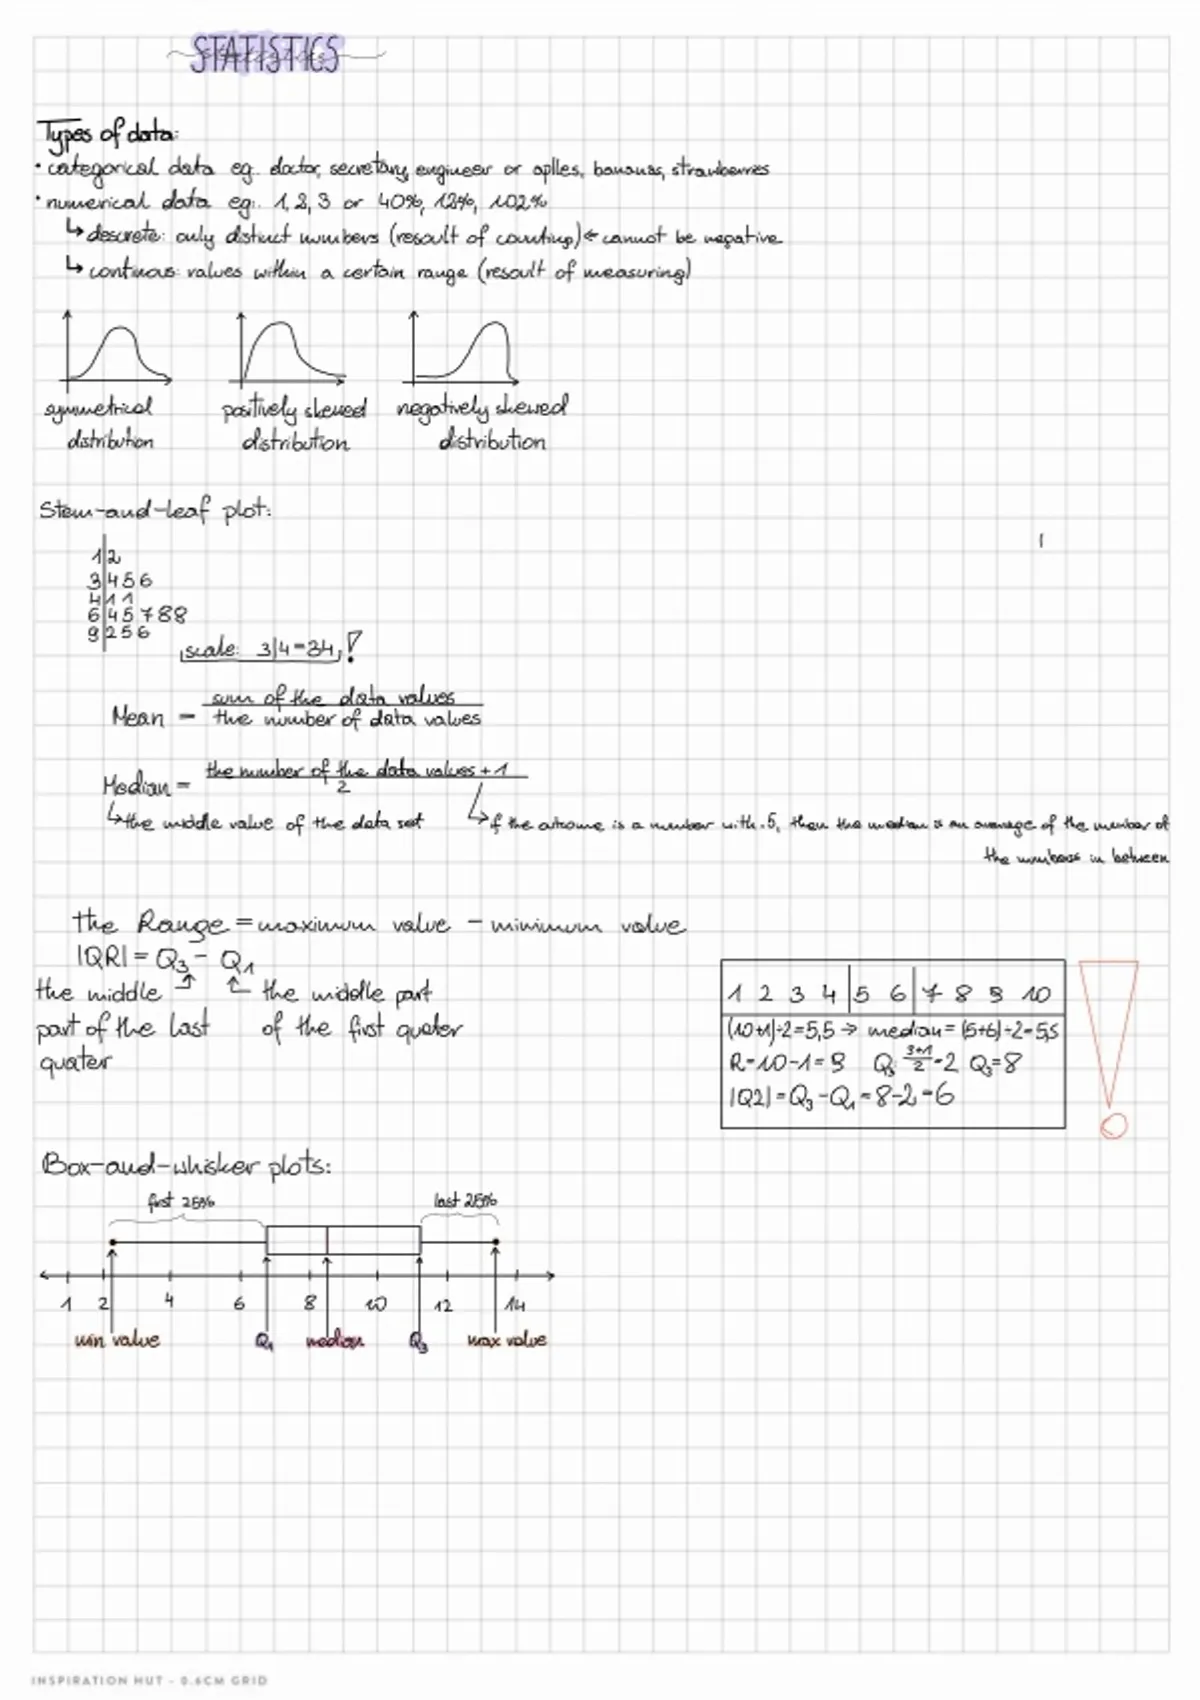 STATISTICS
Types of data:
• categorical data eg. doctor, secretary, engineer or aplles, bananas, strawberries
• numerical data eg. 1, 2, 3 or 40%, 12%, 102%
↳ descrete: only distinct numbers (resoult of counting) ← cannot be negative
↳ continous: values within a certain range (resoult of measuring)
symmetrical distribution
positively skewed distribution
negatively skewed distribution
Stem-and-leaf plot:
1|2
3|4 5 6
4|1 1
6|4 5 7 8 8
9|2 5 6
scale: 3|4=34 !
Mean = sum of the data values / the number of data values
Median = the number of the data values + 1 / 2
↳ the middle value of the data set
↳ if the outcome is a number with .5, then the median is an average of the number of
the numbers in between
the Range = maximum value - minimum value
|QR| = Q3 - Q1
the middle part of the last quater
the middle part of the first quater
1 2 3 4 | 5 6 | 7 8 9 10
(10+1)÷2=5,5 → median = (5+6)÷2=5,5
R=10-1=9 Q3: 3+1/2=2 Q3=8
|Q2| = Q3-Q1 = 8-2=6
Box-and-whisker plots:
first 25% last 25%
1 2 4 6 8 10 12 14
min value Q1 median Q3 max value
INSPIRATION HUT - 0.6CM GRID